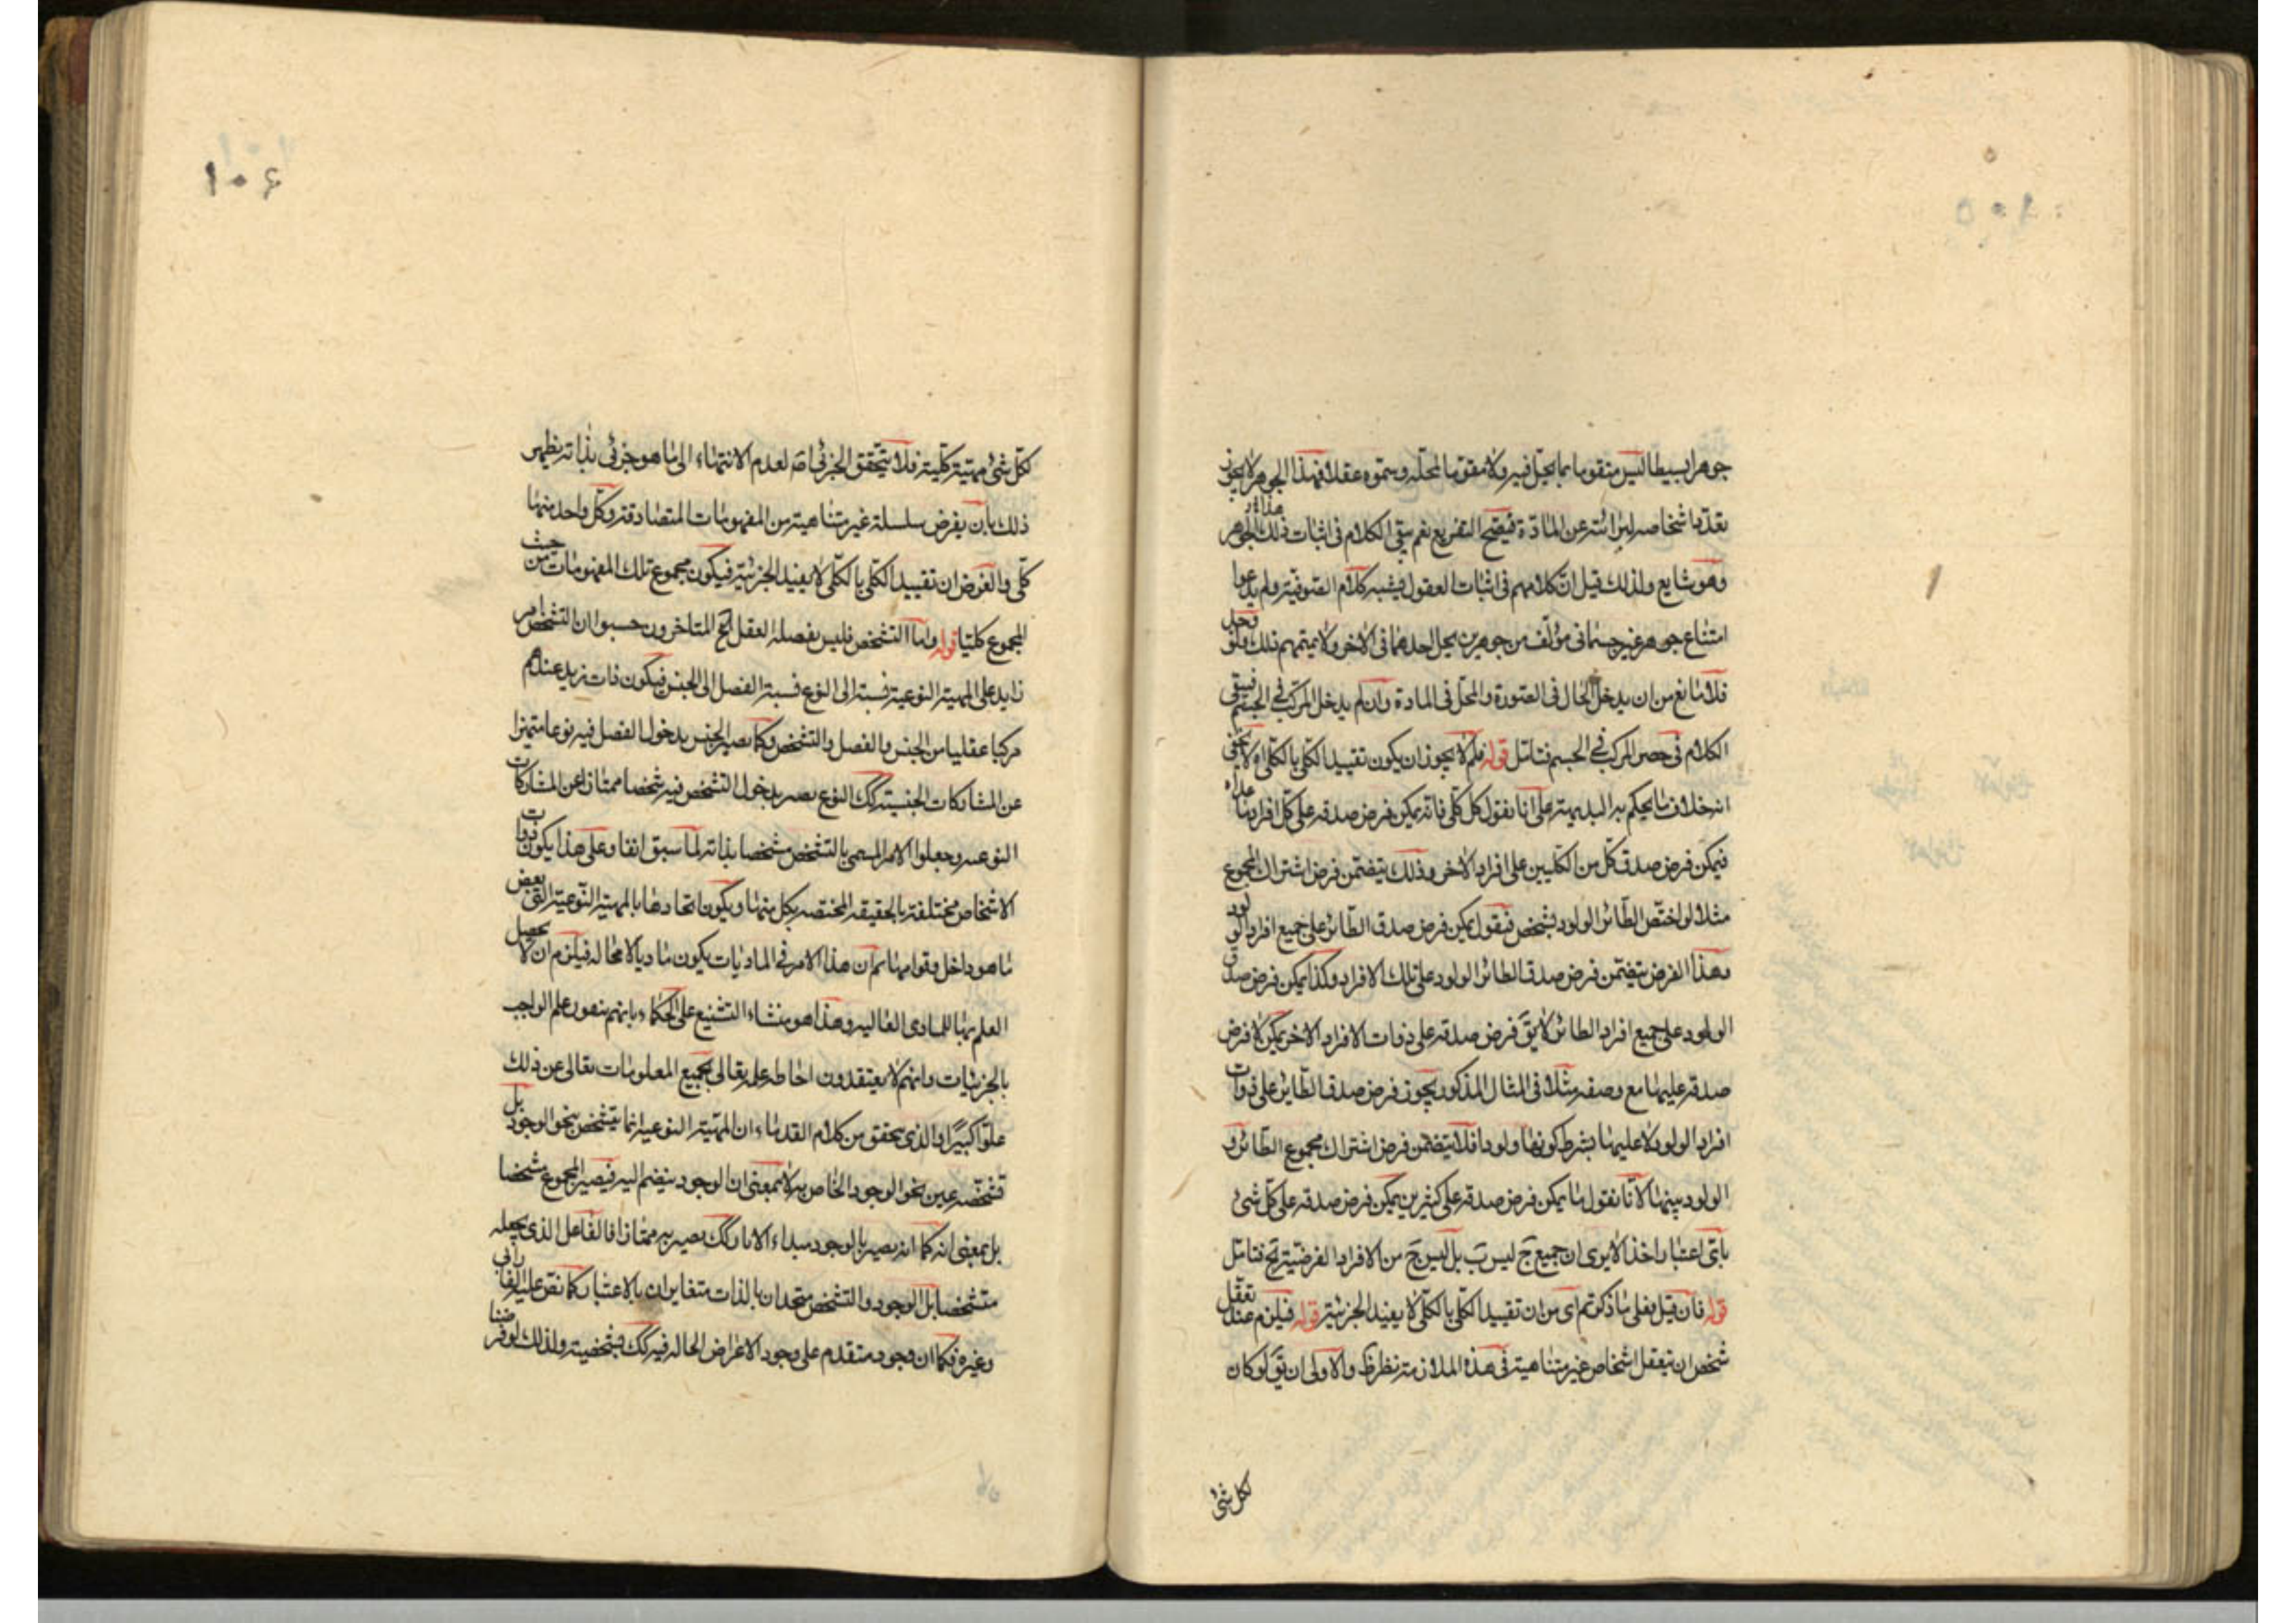 جوهرا بسيطا ليس متقوما بما يحل فيه ولا مقوما لمحله وسموه عقلا فهذا الجوهر لا يجوز
تعدد اشخاصه لبرائته عن المادة فيصح التفريع نعم بقى الكلام فى اثبات ذلك الجوهر
وهو شايع ولذلك قيل ان كلامهم فى اثبات العقول يشبه كلام الصوفية ولم يدعوا
امتناع جوهر غير جسمانى مؤلف من جوهرين يحل احدهما فى الاخر ولا يتمهم ذلك ولو
فلا مانع من ان يدخل الحال فى الصورة والمحل فى المادة وان لم يدخل المركب فى الجسم فيبقى
الكلام فى حصر المركب فى الجسم فتامل قوله فلم لا يجوز ان يكون تقييد الكلى بالكلى اه لا يخفى
انه خلاف ما يحكم به البديهة على انا نقول كل كلى فانه يمكن فرض صدقه على كل افراد ما عداه
فيمكن فرض صدق كل من الكليين على افراد الاخر وذلك يتضمن فرض اشتراك المجموع
مثلا لو اختص الطائر الولود بشخص فنقول يمكن فرض صدق الطائر على جميع افراد الولود
وهذا الفرض يتضمن فرض صدق الطائر الولود على تلك الافراد وكذا يمكن فرض صدق
الولود على جميع افراد الطائر لا يقَ فرض صدقه على ذوات الافراد الاخر يمكن لا فرض
صدقه عليها مع وصفه مثلا فى المثال المذكور يجوز فرض صدق الطائر على ذوات
افراد الولود لا عليها بشرط كونها ولودا فلا يتضمن فرض اشتراك مجموع الطائر و
الولود بينهما لانا نقول ما يمكن فرض صدقه على كثيرين يمكن فرض صدقه على كل شئ
باى اعتبار اخذ الا يرى ان جميع جَ ليس بَ بل ليس جَ من الافراد الفرضية لج فتامل
قوله فان قيل فعلى ما ذكرتم اى من ان تقييد الكلى بالكلى لا يفيد الجزئية قوله فيلزم عند تعقل
شخص ان يتعقل اشخاص غير متناهية فى هذه الملازمة نظر ظَ والاولى ان يقَ لو كان
لكل شئ
١٠٦
لكل شئ مهية كلية فلا يتحقق الجزئى اصَ لعدم الانتهاء الى ما هو جزئى بذاته يظهر
ذلك بان يفرض سلسلة غير متناهية من المفهومات المتصادقة وكل واحد منها
كلى والفرض ان تقييد الكلى بالكلى لا يفيد الجزئية فيكون مجموع تلك المفهومات من حيث
المجموع كليا قوله واما التشخص فليس يفصله العقل الخ المتاخرون حسبوا ان التشخص امر
زايد على المهية النوعية نسبته الى النوع نسبة الفصل الى الجنس فيكون ذات زيد عندهم
مركبا عقليا من الجنس والفصل والتشخص وكما يصير الجنس بدخول الفصل فيه نوعا متميزا
عن المشاركات الجنسية كك النوع يصير بدخول التشخص فيه شخصا ممتازا عن المشاركات
النوعيه وجعلوا الامر المسمى بالتشخص مشخصا بذاته لما سبق انفا وعلى هذا يكون ذوات
الاشخاص مختلفة بالحقيقه المختصه بكل منها ويكون اتحادها بالمهية النوعية التى بعض
ما هو داخل قوامها ثم ان هذا الامر فى الماديات يكون ماديا لا محاله فيلزم ان لا يحصل
العلم بها للمبادى العاليه وهذا هو منشاء التشنيع على الحكماء بانهم ينفون علم الواجب
بالجزئيات وانهم لا يعتقدون احاطه علمه تعالى بجميع المعلومات تعالى عن ذلك
علوا كبيرا والذى يحقق من كلام القدماء ان المهية النوعية انما يتشخص بنحو الوجود بل
تشخصه عين نحو الوجود الخاص به لا بمعنى ان الوجود ينضم اليه فيصير المجموع مشخصا
بل بمعنى انه كما انه يصير بالوجود مبداء الاثار كك يصير به ممتازا فالفاعل الذى يجعله
متشخصا بل الوجود والتشخص متحدان بالذات متغايران بالاعتبار كما نص عليه الفارابى
وغيره فكما ان وجوده متقدم على وجود الاعراض الحاله فيه كك تشخصيته ولذلك لو فرضنا